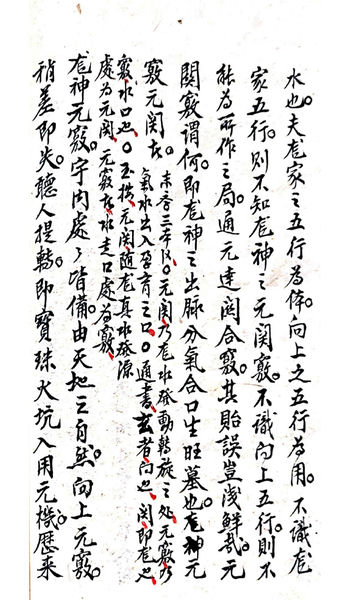 水也。夫龙家之五行為体。向上之五行為用。不識龙
家五行。則不知龙神之元関竅。不識向上五行。則不
能為所作之局。通元達関合竅。其貽誤豈浅鮮哉。元
関竅謂何。即龙神之出脉分氣合口生旺墓也。龙神元
竅元関在。
未章三午。元関乃龙水發動轉旋之处。元竅乃
氣水出入孕育之口。通書。玄者向也。関即龙也。
竅水口也。玉按。元関随龙真水發源
處為元関。元竅於水走口處為竅。
龙神元竅。宇内處々皆備。由天地之自然。向上元竅。
稍差即失。聽人提轉。即寶珠火坑入用元機。歴来